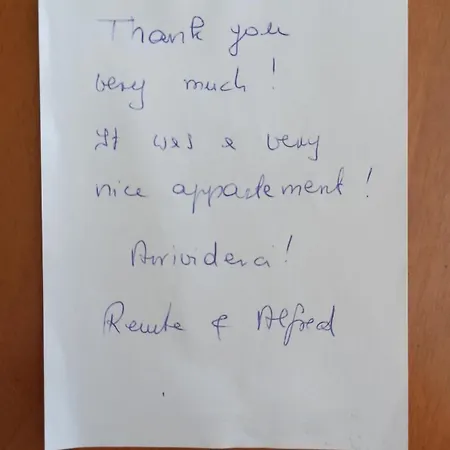 Thank you
very much!
It was a very
nice appartement!
Arrividerci!
Renate & Alfred